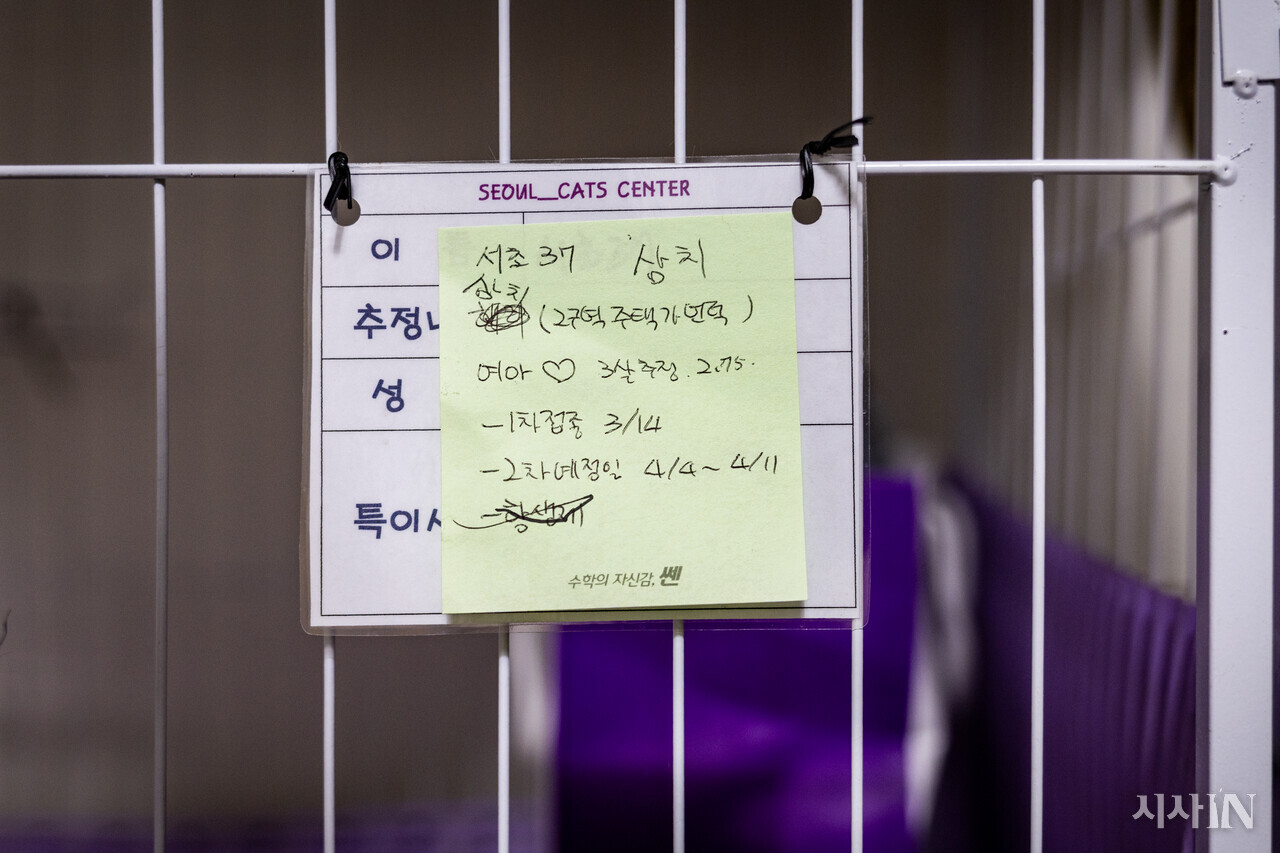 SEOUL_CATS CENTER
이
서초 37 상치
삼치
(2구역 주택가 언덕)
추정나
여아 ♡ 3살추정. 2.75.
성
-1차접종 3/14
-2차예정일 4/4~4/11
특이사
-항생제
수학의 자신감, 쎈
시사IN